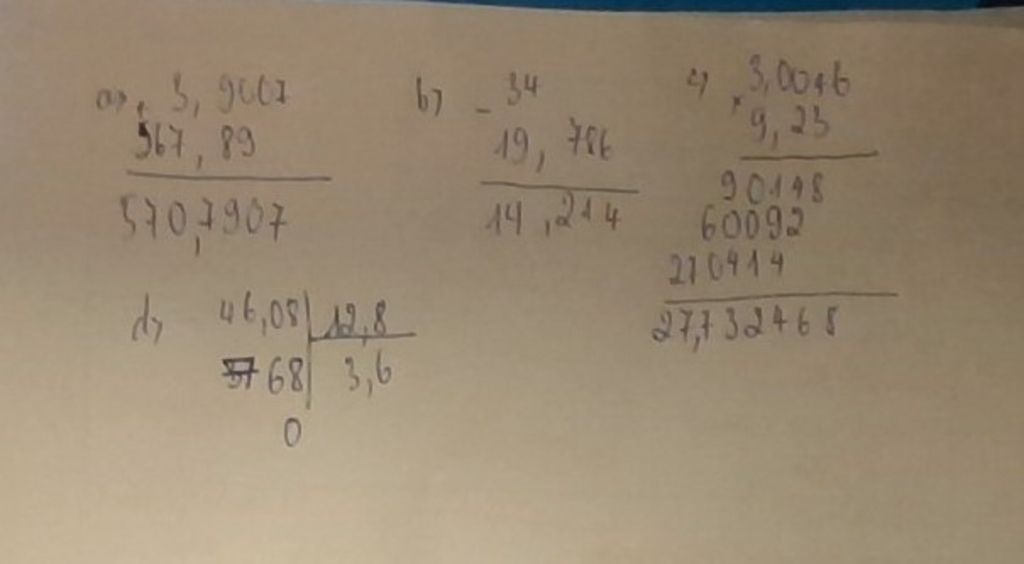 a) + 3,9007
567,89
570,7907
b) - 34
19,786
14,214
c) × 3,0046
9,23
90148
60092
270414
27,732468
d) 46,08 | 12,8
768 | 3,6
0